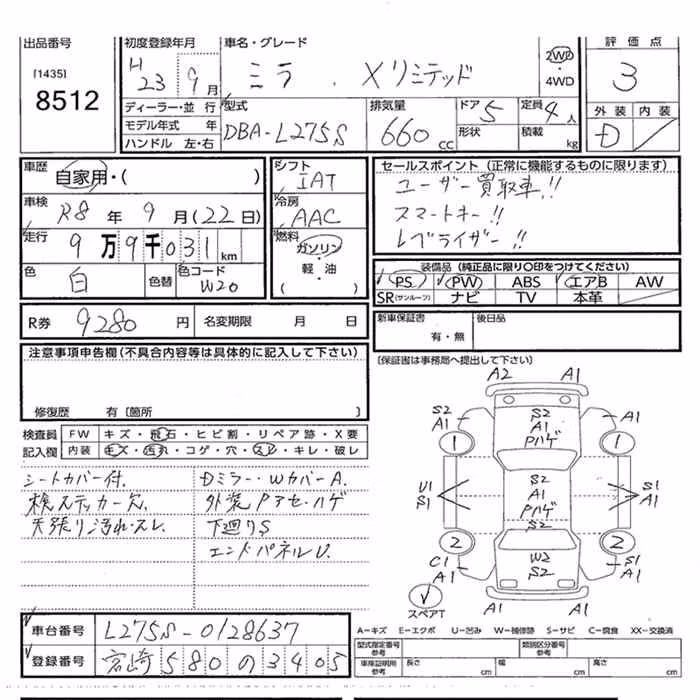 出品番号
[1435]
8512
初度登録年月
H
23 9月
車名・グレード
ミラ . Xリミテッド
2WD
・
4WD
評価点
3
外装 内装
D
ディーラー・並行
モデル年式 年
ハンドル 左・右
型式
DBA-L275S
排気量
660cc
ドア 5
形状
定員 4人
積載 kg
車歴
自家用・( )
車検
R8年 9月(22日)
走行
9万9千031km
色
白
色替
色コード
W20
シフト
IAT
冷房
AAC
燃料
ガソリン
・
軽・油
セールスポイント (正常に機能するものに限ります)
ユーザー買取車!!
スマートキー!!
レブライザー!!
装備品 (純正品に限り〇印をつけてください)
PS PW ABS エアB AW
SR(サンルーフ) ナビ TV 本革
R券 9280円 名変期限 月 日
新車保証書
有・無
後日品
(保証書は事務局へ提出して下さい)
注意事項申告欄(不具合内容等は具体的に記入して下さい)
修復歴 有〔箇所 〕
検査員
記入欄
FW キズ・飛石・ヒビ割・リペア跡・X要
内装 キズ・汚れ・コゲ・穴・スレ・キレ・破レ
シートカバー付. Dミラー・WカバーA.
検ステッカー欠. 外装Pアセ・ハゲ
天張り汚れ・スレ. 下廻りS
エンドパネルU.
A2 A1
S2
A1
S2
A1
Pハゲ
A1
1 1
U1
S1
S2
A1
Pハゲ
S1
A1
S2
2 2
C1
A1
W2
S2
S1
A1
A1 A1
スペアT
A−キズ E−エクボ U−凹み W−補修跡 S−サビ C−腐食 XX−交換済
車台番号 L275S-0128637
登録番号 宮崎580の3405
型式指定番号
参考
類別区分番号
参考
車庫証明用
参考
長さ cm 幅 cm 高さ cm